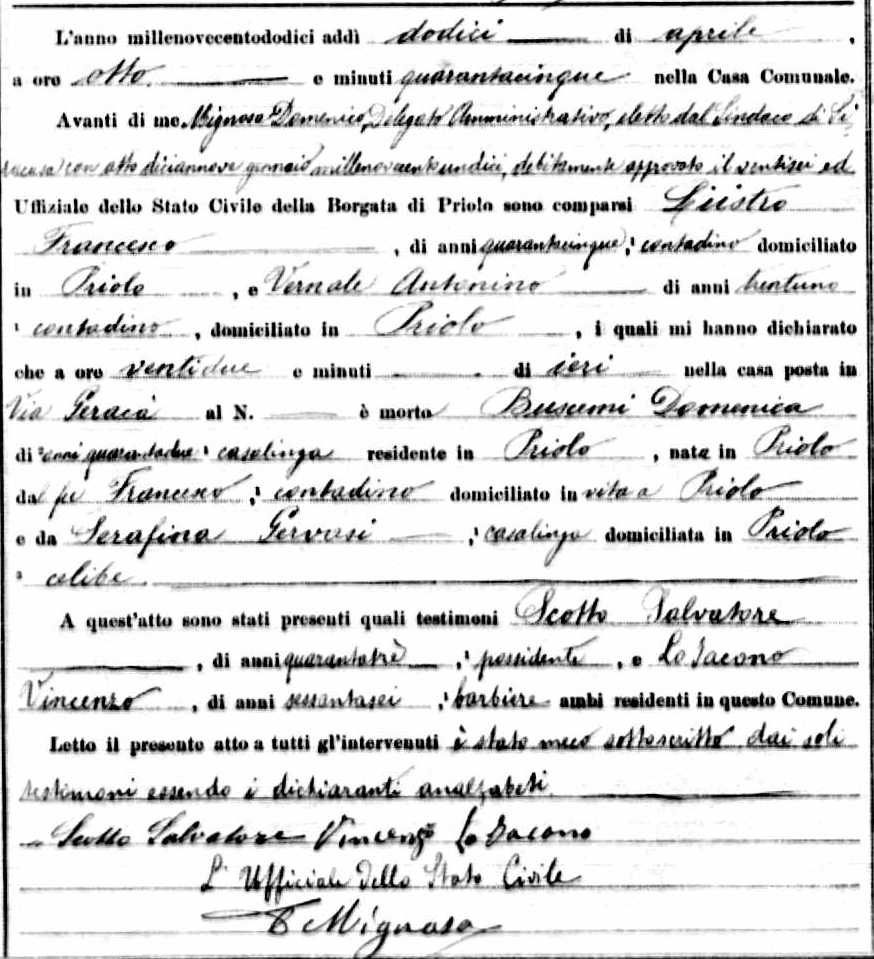 L'anno millenovecentododici addì dodici di aprile,
a ore otto e minuti quarantacinque nella Casa Comunale.
Avanti di me Mignosa Domenico, Delegato Amministrativo, eletto dal Sindaco di Si-
racusa con atto diciannove gennaio millenovecentoundici, debitamente approvato il ventisei ed
Uffiziale dello Stato Civile della Borgata di Priolo sono comparsi Liistro
Francesco, di anni quarantacinque, contadino domiciliato
in Priolo, e Vernale Antonino di anni trentuno
contadino, domiciliato in Priolo, i quali mi hanno dichiarato
che a ore ventidue e minuti di ieri nella casa posta in
Via Geracà al N. è morta Buscemi Domenica
di anni quarantadue, casalinga residente in Priolo, nata in Priolo
da fu Francesco, contadino domiciliato in vita a Priolo
e da Serafina Gervasi, casalinga domiciliata in Priolo
celibe.
A quest'atto sono stati presenti quali testimoni Scotto Salvatore
, di anni quarantatrè, possidente, e Lo Iacono
Vincenzo, di anni sessantasei, barbiere ambi residenti in questo Comune.
Letto il presente atto a tutti gl'intervenuti è stato meco sottoscritto dai soli
testimoni essendo i dichiaranti analfabeti.
Scotto Salvatore Vincenzo Lo Iacono
L'Ufficiale dello Stato Civile
D Mignosa